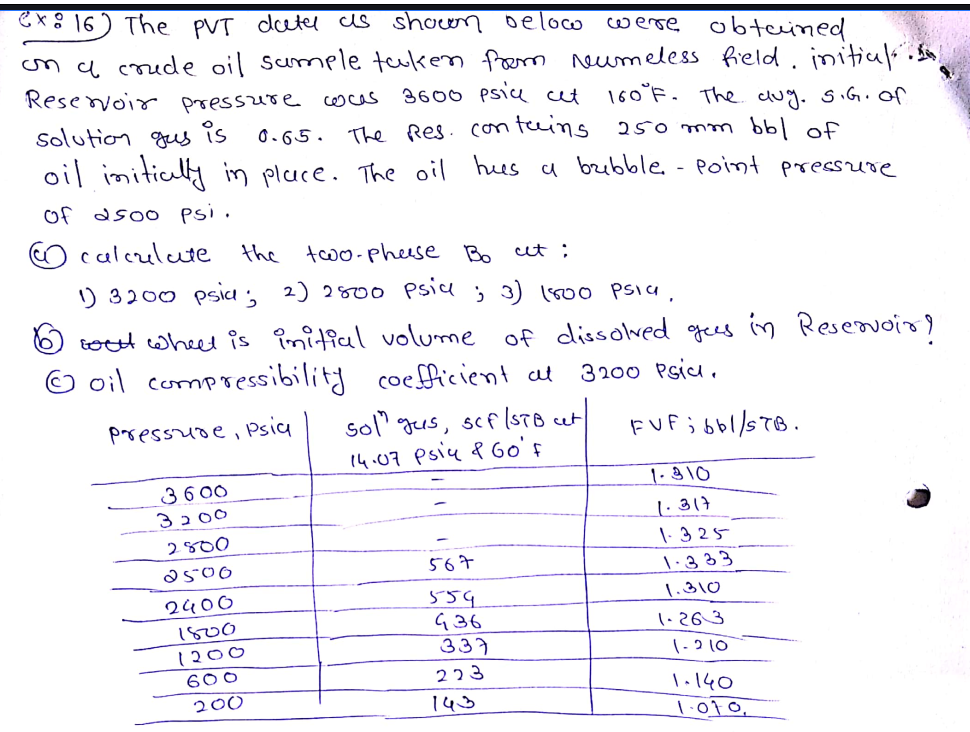 Ex: 16) The PVT data as shown below were obtained
on a crude oil sample taken from Numeless field. initial
Reservoir pressure was 3600 psia at 160°F. The avg. S.G. of
solution gas is 0.65. The Res. contains 250 mm bbl of
oil initially in place. The oil has a bubble-point pressure
of 2500 psi.
(a) calculate the two-phase Bo at :
1) 3200 psia; 2) 2800 psia ; 3) 1800 psia.
(b) what is initial volume of dissolved gas in Reservoir?
(c) oil compressibility coefficient at 3200 psia.
Pressure, psia | solⁿ gas, scf/STB at | FVF; bbl/STB.
14.07 psia & 60°f
3600 | - | 1.310
3200 | - | 1.317
2800 | - | 1.325
2500 | 567 | 1.333
2400 | 554 | 1.310
1800 | 436 | 1.263
1200 | 337 | 1.210
600 | 223 | 1.140
200 | 143 | 1.070.